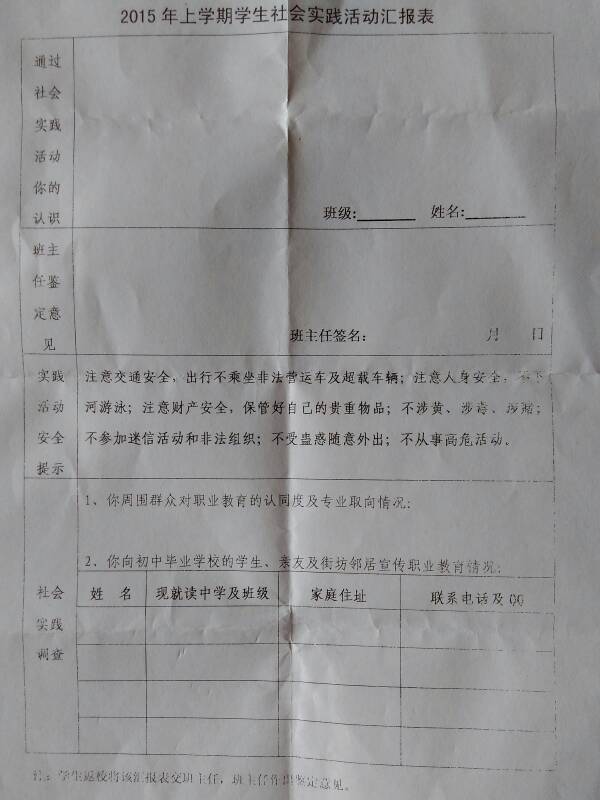 2015年上学期学生社会实践活动汇报表
通过
社会
实践
活动
你的
认识
班级:_______ 姓名:_______
班主
任鉴
定意
见
班主任签名: 月 日
实践
活动
安全
提示
注意交通安全，出行不乘坐非法营运车及超载车辆；注意人身安全，不下
河游泳；注意财产安全，保管好自己的贵重物品；不涉黄、涉毒、涉赌；
不参加迷信活动和非法组织；不受蛊惑随意外出；不从事高危活动。
社会
实践
调查
1、你周围群众对职业教育的认同度及专业取向情况:
2、你向初中毕业学校的学生、亲友及街坊邻居宣传职业教育情况:
姓 名 现就读中学及班级 家庭住址 联系电话及QQ
注：学生返校将该汇报表交班主任，班主任作出鉴定意见。